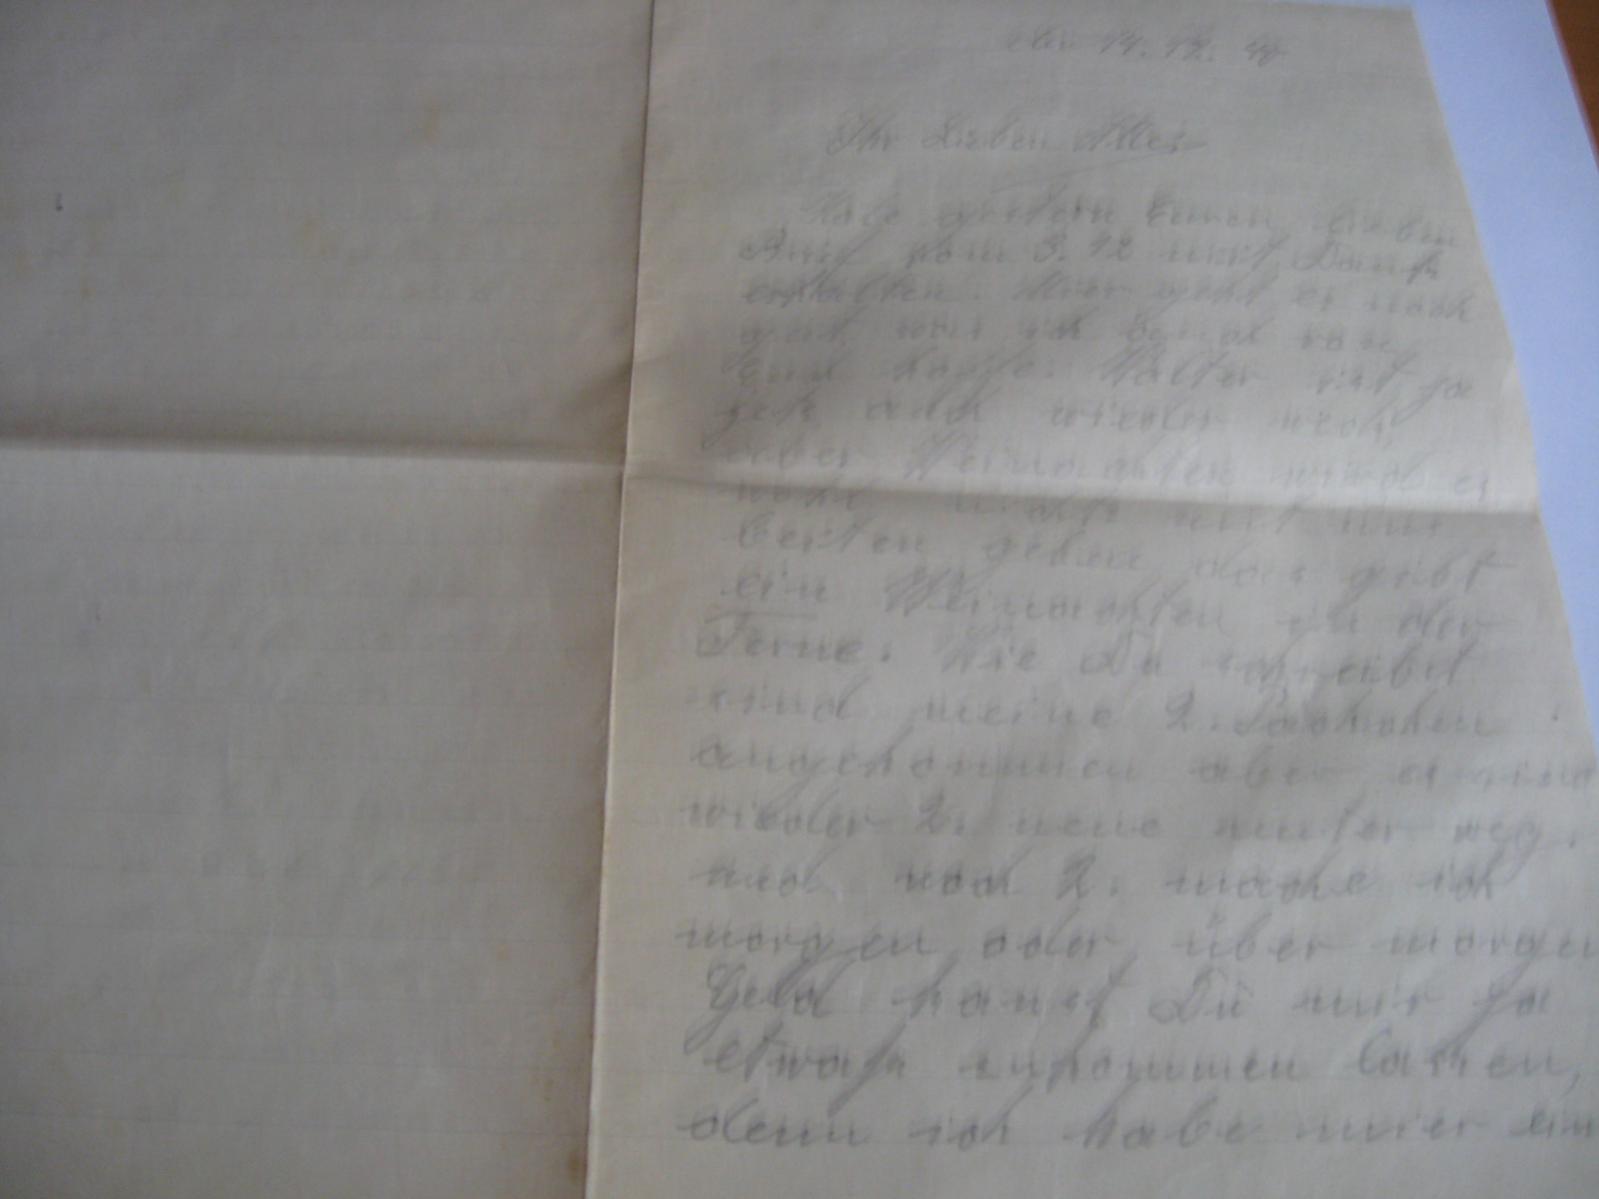 den 14. 12. 41
Ihr Lieben Alle!
Habe gestern Euren lieben
Brief vom 3. 12 mit Dank
erhalten. Mir geht es noch
gut, was ich auch von
Euch hoffe. Walter ist ja
jetzt auch wieder weck,
aber Weinachten wird es
wohl nicht mit zum
besten gehen das gibt
ein Weinachten in der
Ferne. Wie Du schreibst
sind meine 2. Päckchen
angekommen aber es sind
wieder 2. neue unter weg.
und noch 2. mache ich
morgen oder über morgen
Geld kanst Du mir ja
etwas zukommen lassen,
denn ich habe mier ein